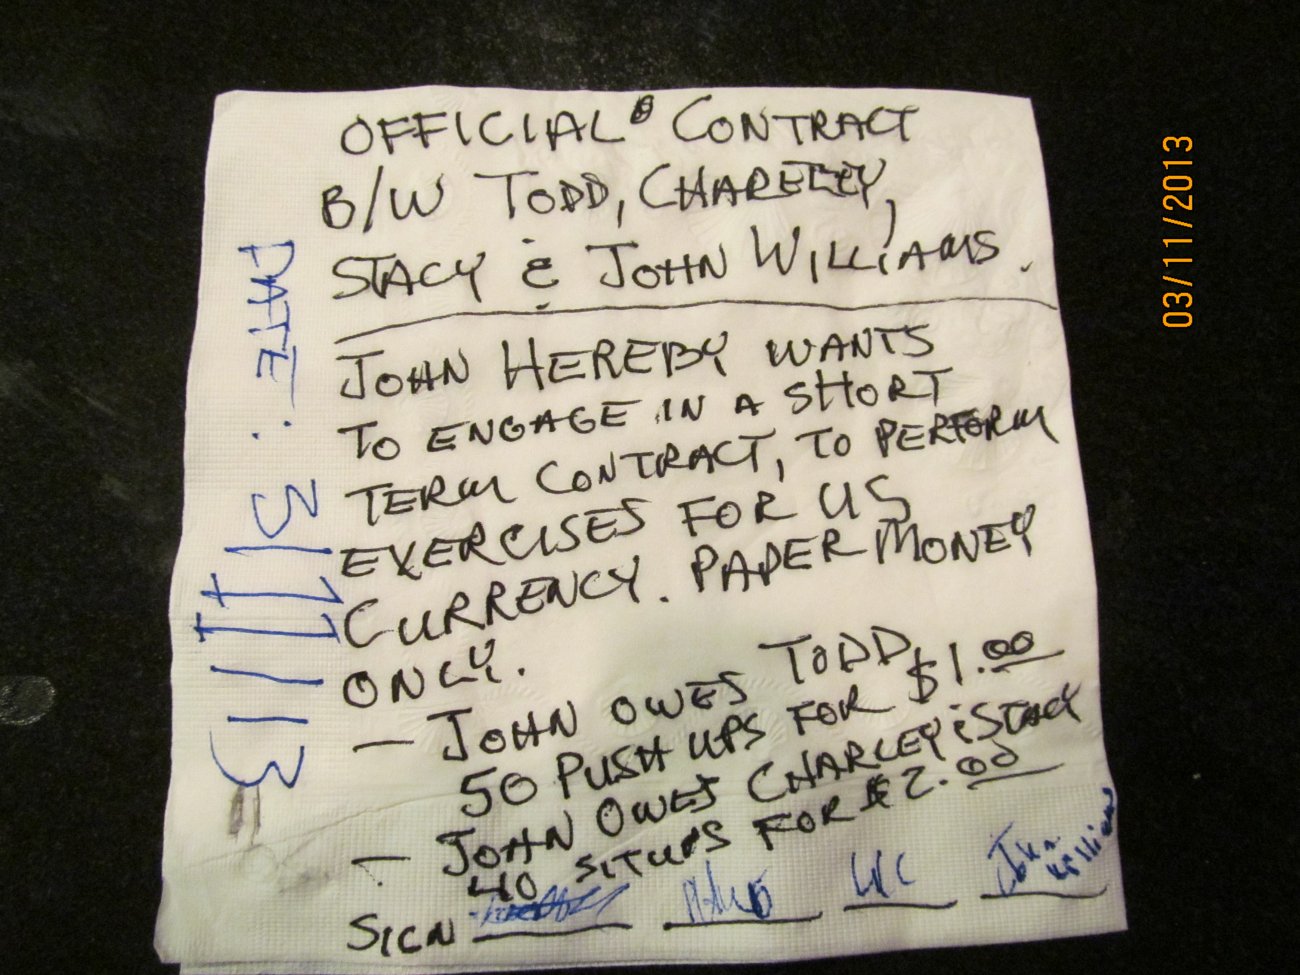 OFFICIAL CONTRACT
B/W TODD, CHARLEY,
STACY & JOHN WILLIAMS.
JOHN HEREBY WANTS
TO ENGAGE IN A SHORT
TERM CONTRACT, TO PERFORM
EXERCISES FOR US
CURRENCY. PAPER MONEY
ONLY.
— JOHN OWES TODD
50 PUSH UPS FOR $1.00
— JOHN OWES CHARLEY & STACY
40 SITUPS FOR $2.00
SIGN John Williams
DATE: 3/11/13
03/11/2013